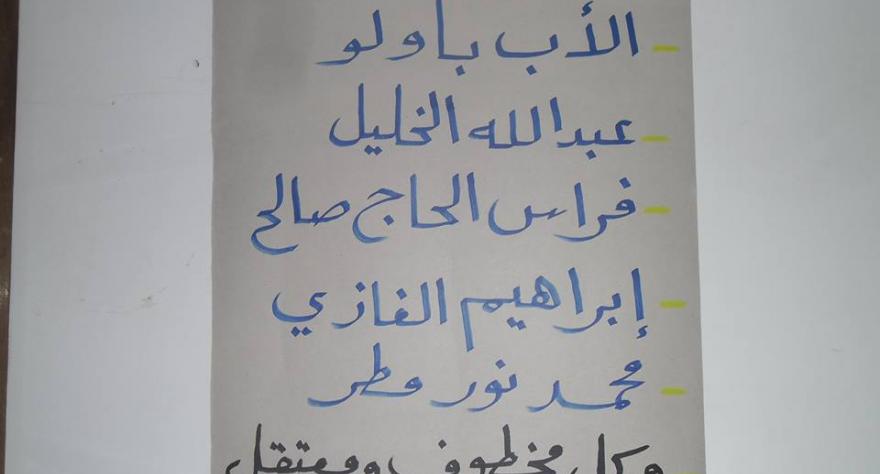 - الأب باولو
- عبدالله الخليل
- فراس الحاج صالح
- إبراهيم الغازي
- محمد نور مطر
وكل مخطوف ومعتقل